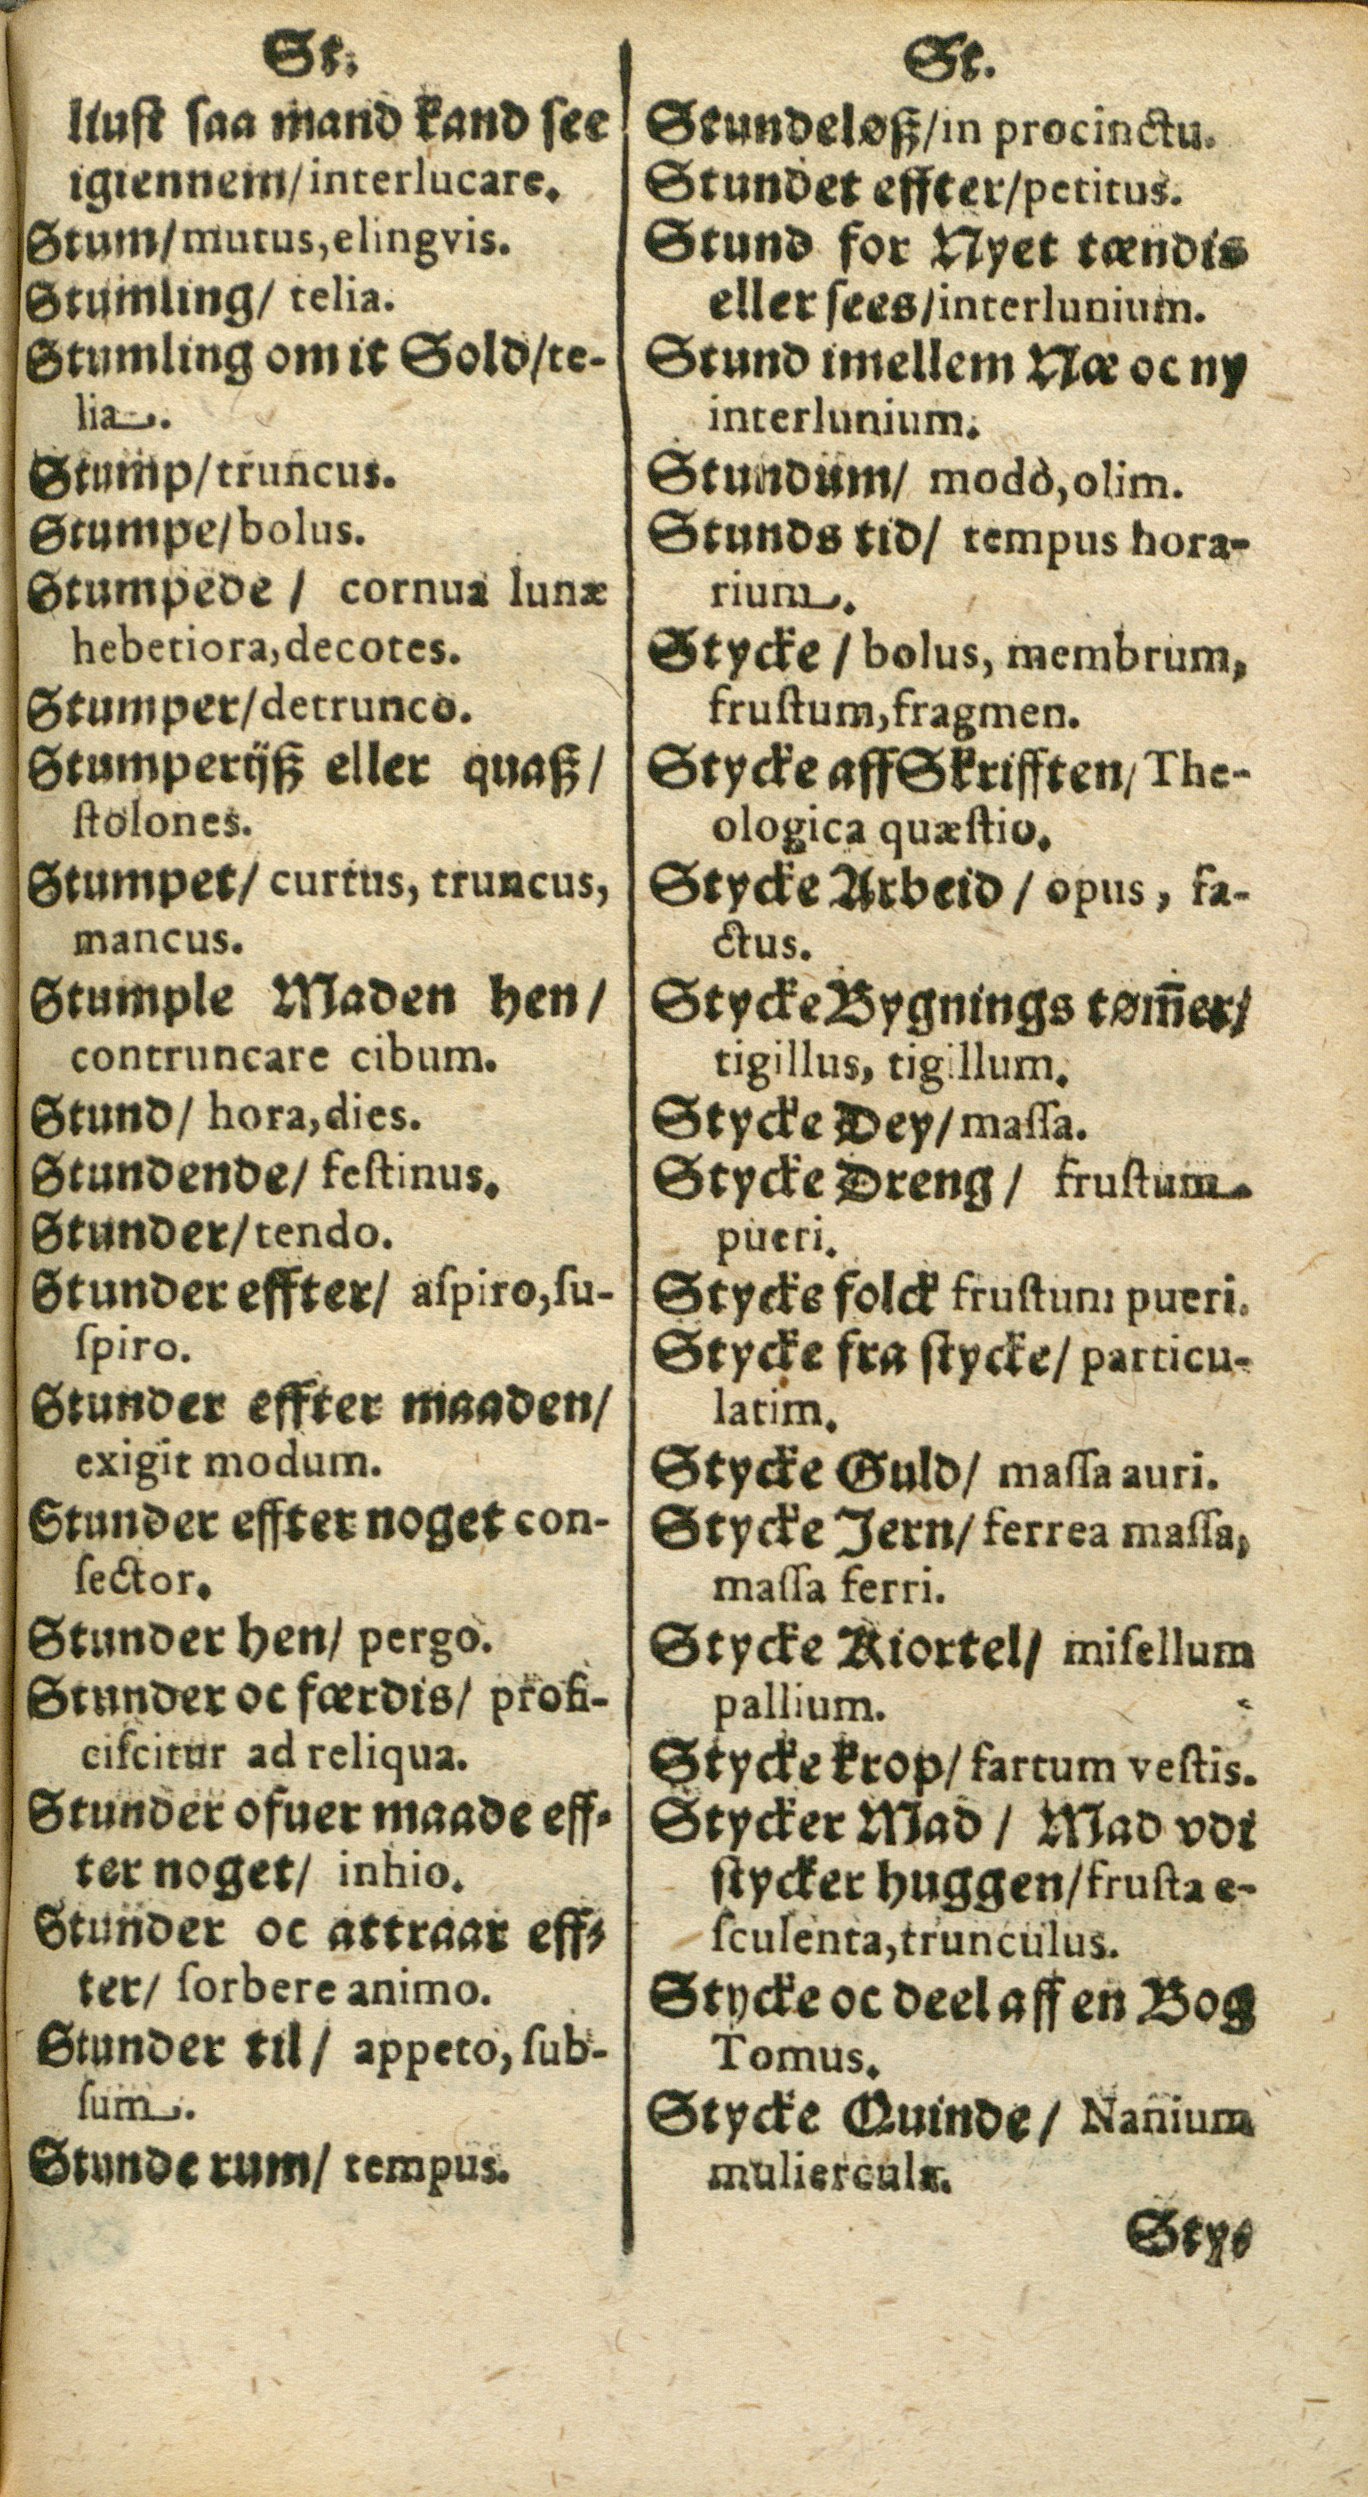 St.
liust saa mand kand see
igiennem/interlucare.
Stum/mutus,elingvis.
Stumling/ telia.
Stumling om it Sold/te-
lia.
Stump/truncus.
Stumpe/bolus.
Stumpede / cornua lunæ
hebetiora,decotes.
Stumper/detrunco.
Stumperijß eller quaß/
ſtolones.
Stumpet/ curtus, truncus,
mancus.
Stumple Maden hen/
contruncare cibum.
Stund/ hora,dies.
Stundende/ feſtinus.
Stunder/tendo.
Stunder effter/ aſpiro,ſu-
ſpiro.
Stunder effter maaden/
exigit modum.
Stunder effter noget con-
ſector.
Stunder hen/ pergo.
Stunder oc færdis/ profi-
ciſcitur ad reliqua.
Stunder ofuer maade eff-
ter noget/ inhio.
Stunder oc attraar eff-
ter/ ſorbere animo.
Stunder til/ appeto, ſub-
ſum.
Stunde rum/ tempus.
St.
Stundeløß/in procinctu.
Stundet effter/petitus.
Stund for Nyet tændis
eller ſees/interlunium.
Stund imellem Næ oc ny
interlunium.
Stundum/ modò,olim.
Stunds tid/ tempus hora-
rium.
Stycke / bolus, membrum,
fruſtum,fragmen.
Stycke aff Skrifften/ The-
ologica quæſtio.
Stycke Arbeid / opus, fa-
ctus.
Stycke Bygnings tøm̄er/
tigillus, tigillum.
Stycke Dey/ maſſa.
Stycke Dreng/ fruſtum
pueri.
Stycke folck fruſtum pueri.
Stycke fra ſtycke/ particu-
latim.
Stycke Guld/ maſſa auri.
Stycke Jern/ ferrea maſſa,
maſſa ferri.
Stycke Kiortel/ miſellum
pallium.
Stycke krop/ fartum veſtis.
Stycker Mad / Mad vdi
ſtycker huggen/fruſta e-
ſculenta,trunculus.
Stycke oc deel aff en Bog
Tomus.
Stycke Quinde/ Nanium
mulierculæ.
Sty-